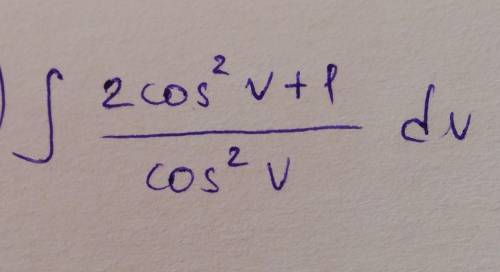 ) ∫ (2cos² v + 1) / (cos² v) dv